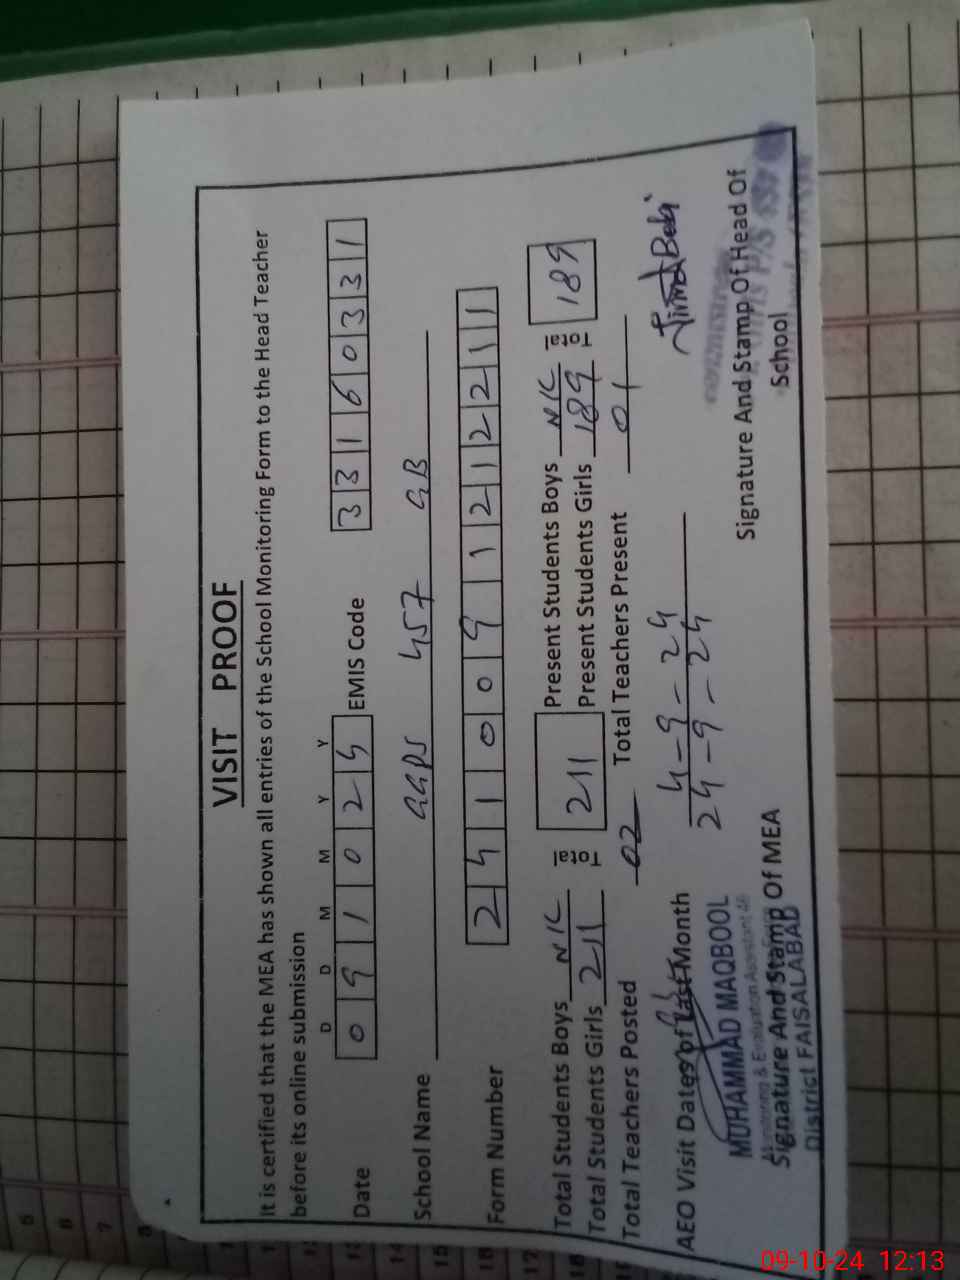 VISIT PROOF
It is certified that the MEA has shown all entries of the School Monitoring Form to the Head Teacher
before its online submission
D D M M Y Y
Date 0 9 1 0 2 4 EMIS Code 3 3 1 6 0 3 3 1
School Name GGPS 457 GB
Form Number 2 4 1 0 0 9 1 2 1 2 2 1 1
Total Students Boys NIL Total 211 Present Students Boys NIL Total 189
Total Students Girls 211 Present Students Girls 189
Total Teachers Posted 02 Total Teachers Present 01
AEO Visit Dates of Last Month 4-9-24
24-9-24
MUHAMMAD MAQBOOL
Monitoring & Evaluation Assistant 46
Signature And Stamp Of MEA
District FAISALABAD
Signature And Stamp Of Head Of
School
5
6
7
8
09-10-24 12:13